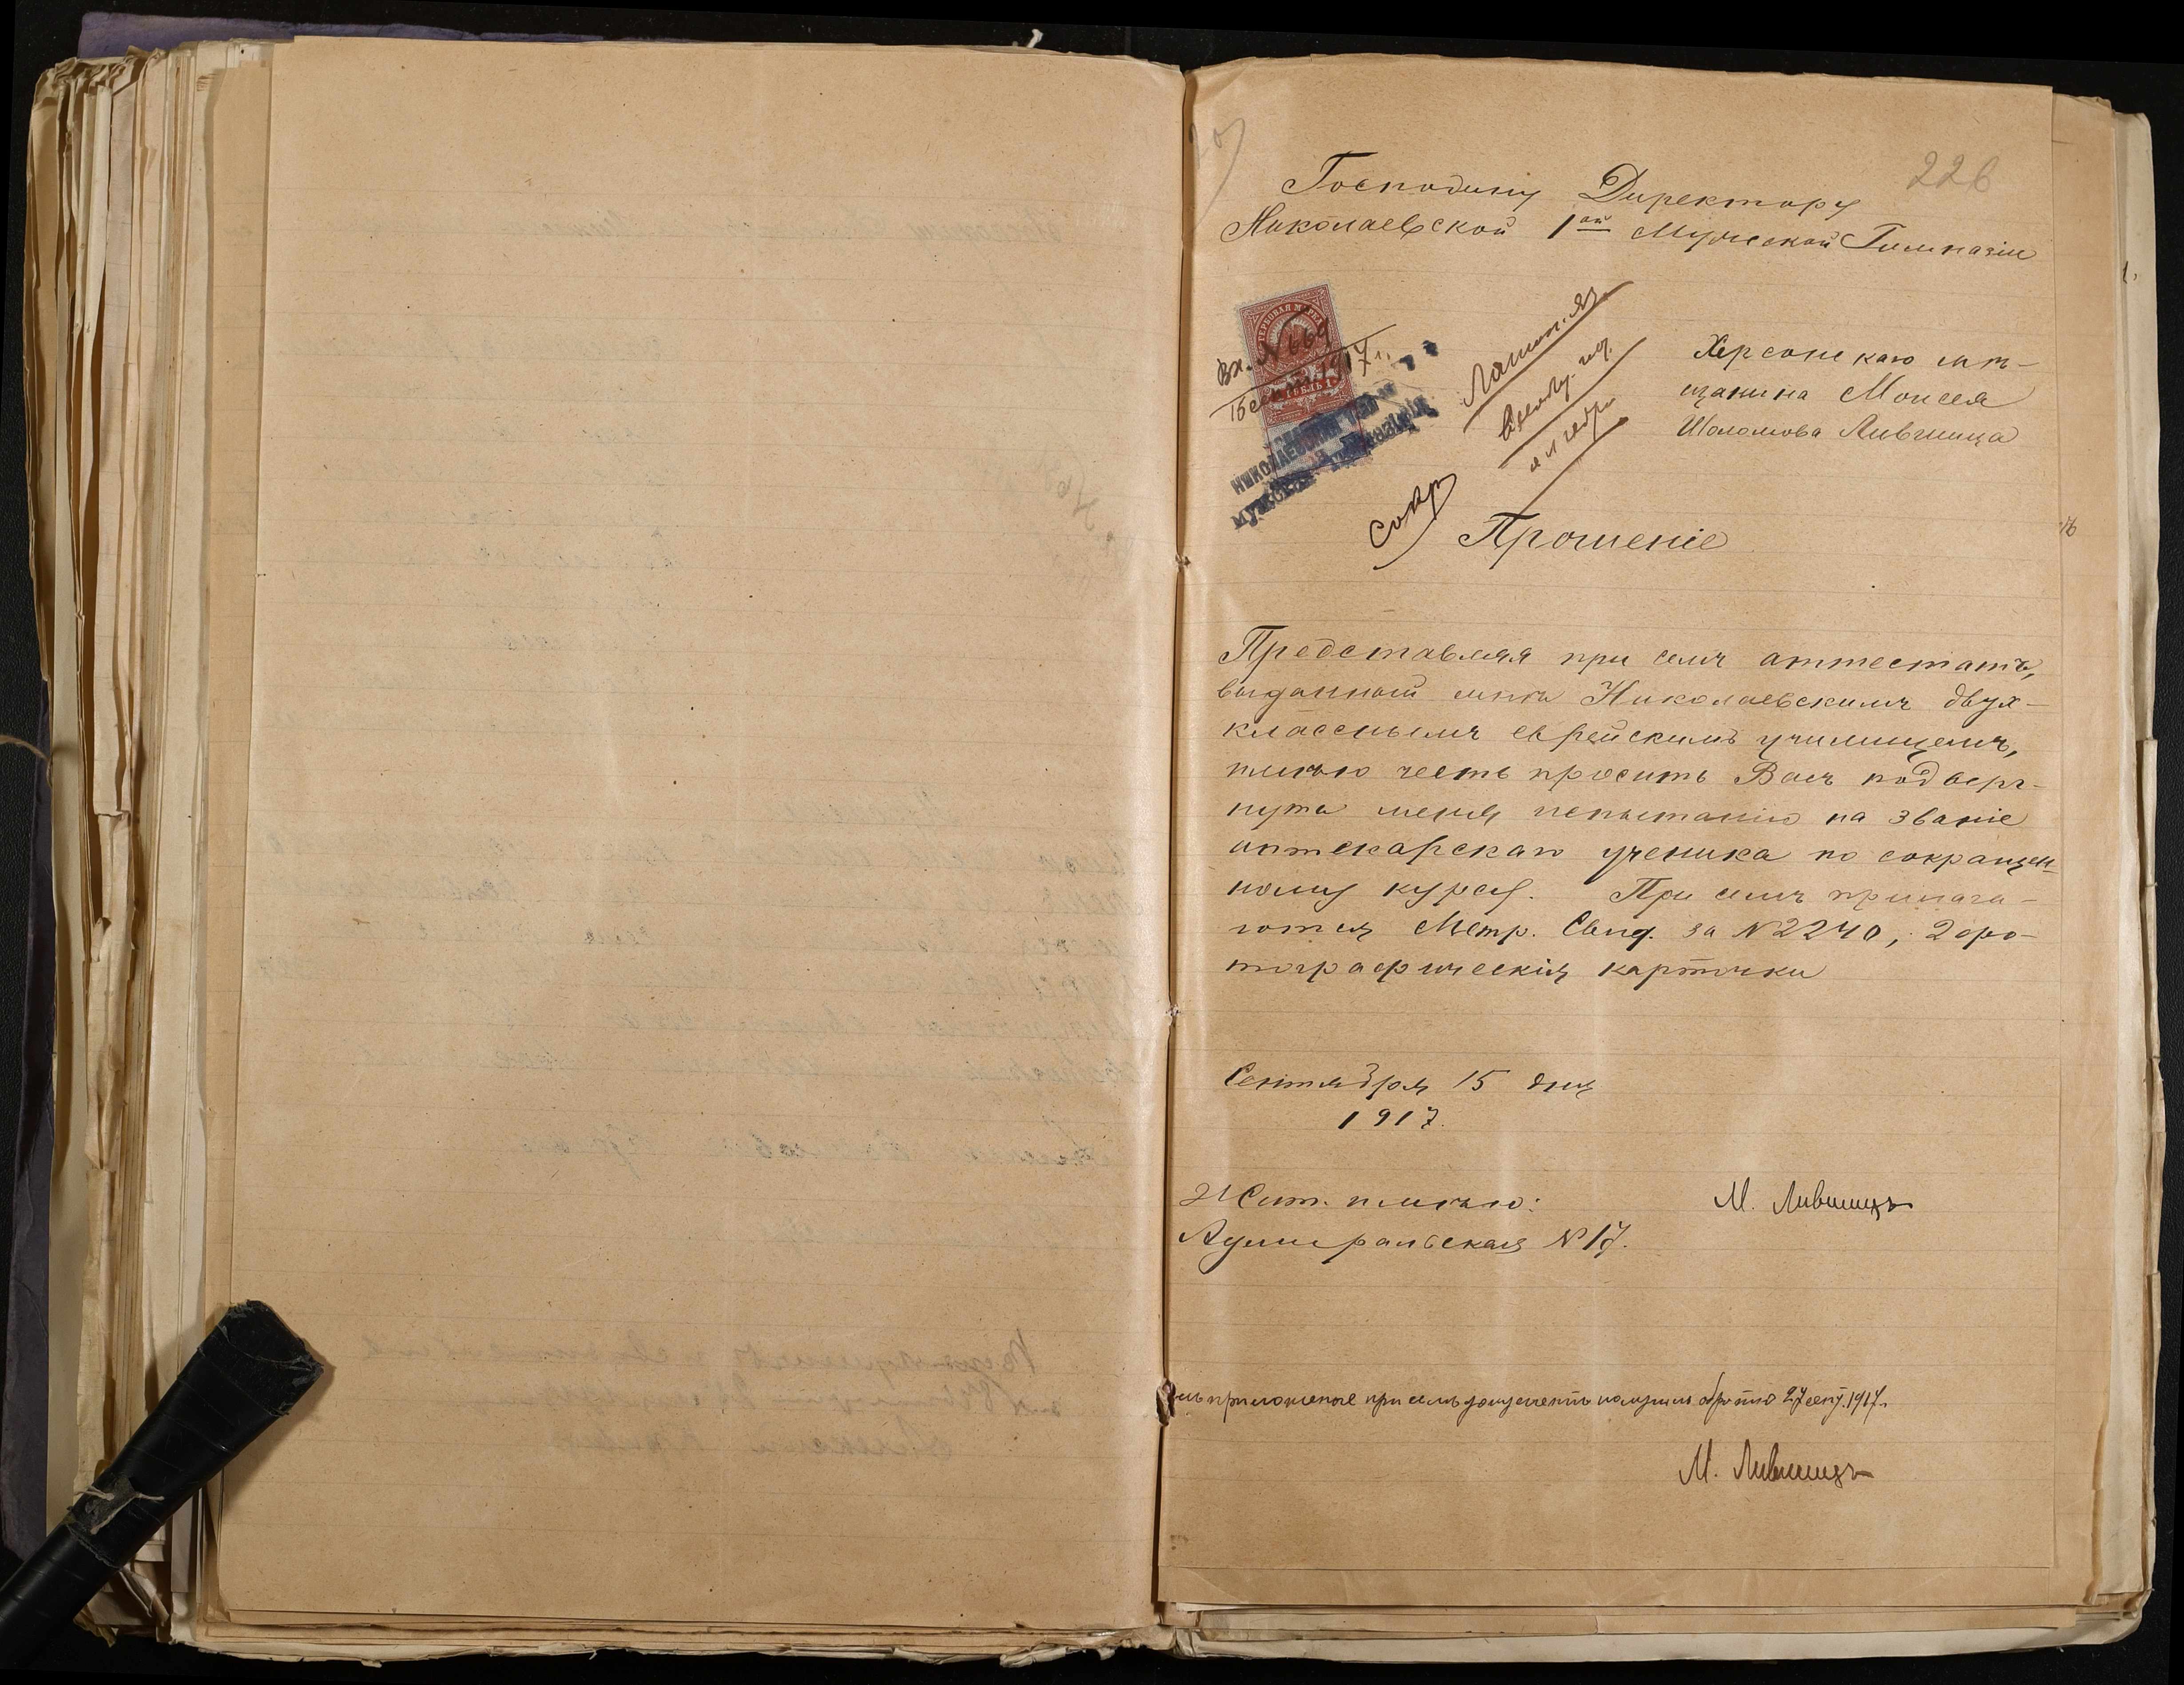 226
Господину Директору
Николаевской 1ой Мужской Гимназіи
Вх. №669
15 сент. 1917 г.
ГЕРБОВАЯ МАРКА
РУБЛЬ 1
НИКОЛАЕВСКАЯ
МУЖСКАЯ ГИМНАЗІЯ
Латин. яз.
Сокр
Херсонскаго мѣ-
щанина Моисея
Шоломова Лившица
Прошеніе
Представляя при семъ аттестатъ,
выданный мнѣ Николаевскимъ двух-
класснымъ еврейскимъ училищемъ,
имѣю честь просить Васъ подверг-
нуть меня испытанію на званіе
аптекарскаго ученика по сокращен-
ному курсу. При семъ прилага-
ются Метр. Свид. за №2240, 2 фо-
тографическія карточки
Сентября 15 дня
1917.
Жит. имѣю:
Адмиральская №17.
М. Лившицъ
приложенные при семъ документы получилъ обратно 27 сент. 1917 г.
М. Лившицъ